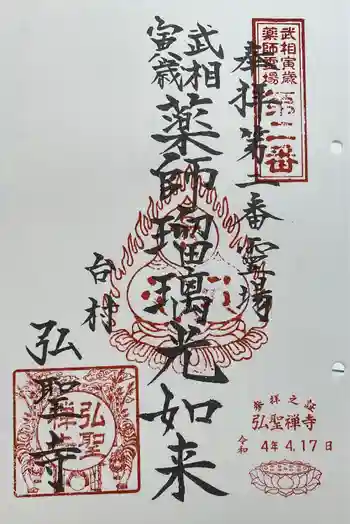 武相寅歳
薬師霊場
第二番
奉拝第二番霊場
武相
寅歳
薬師瑠璃光如来
白村
弘聖寺
弘聖
禅寺
発祥之志
弘聖禅寺
令和 4年4.17日